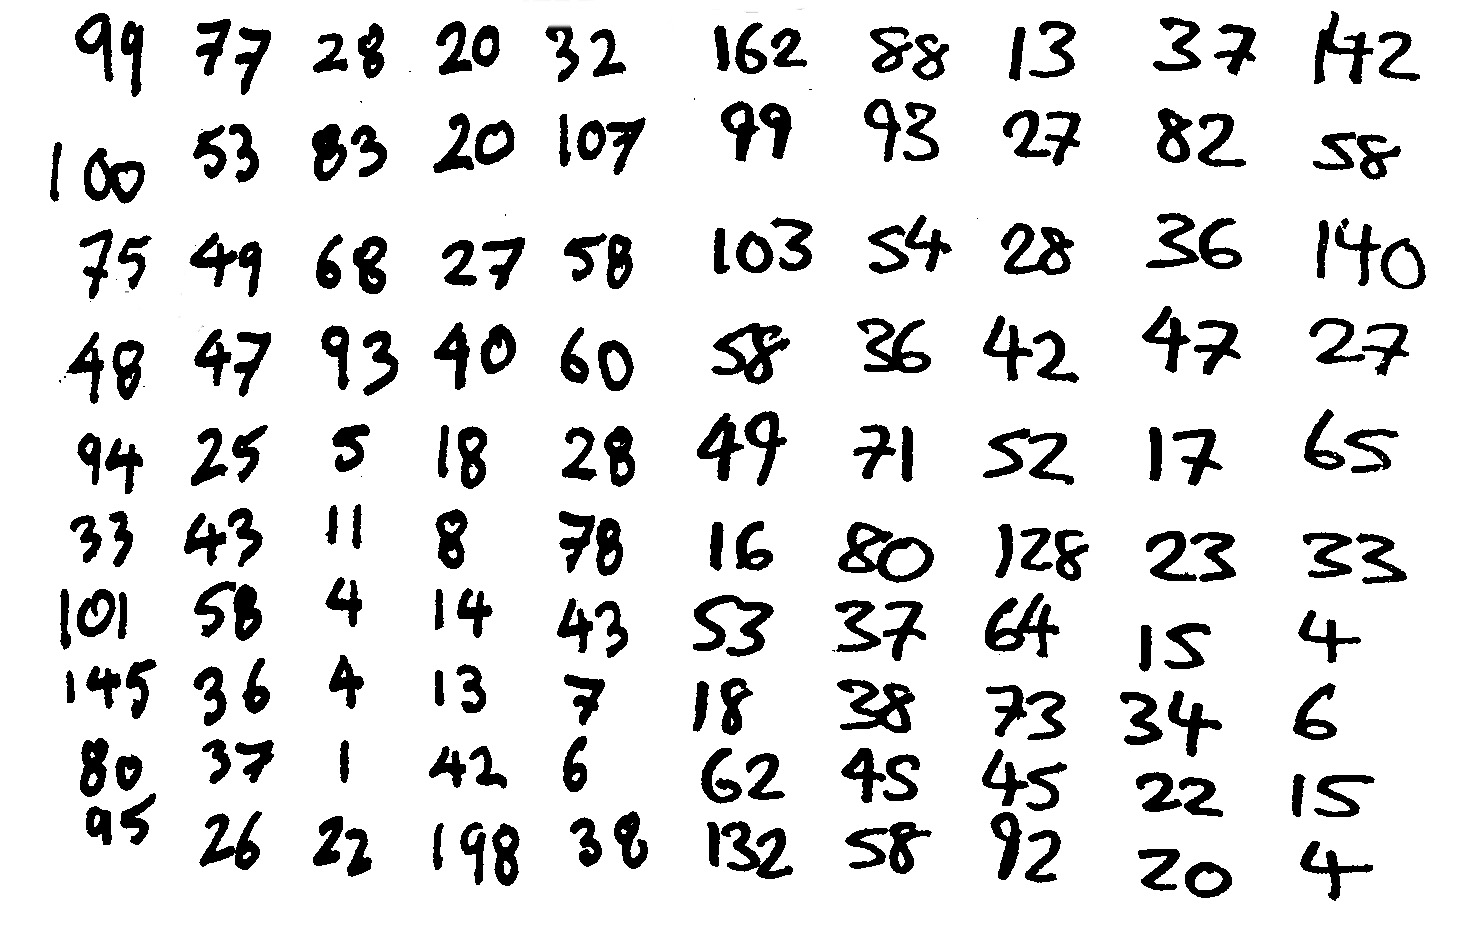 99 77 28 20 32 162 88 13 37 142
100 53 83 20 107 99 93 27 82 58
75 49 68 27 58 103 54 28 36 140
48 47 93 40 60 58 36 42 47 27
94 25 5 18 28 49 71 52 17 65
33 43 11 8 78 16 80 128 23 33
101 58 4 14 43 53 37 64 15 4
145 36 4 13 7 18 38 73 34 6
80 37 1 42 6 62 45 45 22 15
95 26 22 198 38 132 58 92 20 4